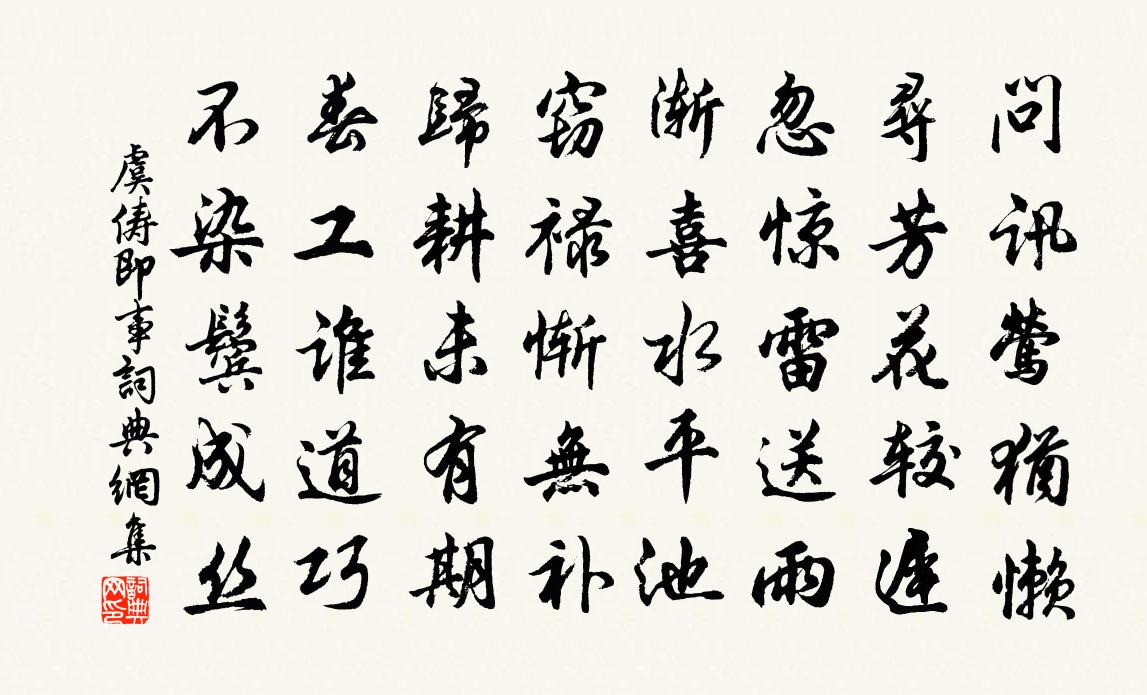 问讯莺犹懒
寻芳花较迟
忽惊雷送雨
渐喜水平池
窃禄惭無补
歸耕未有期
春工谁道巧
不染鬓成丝
虞俦即事詞典網集
詞典網印